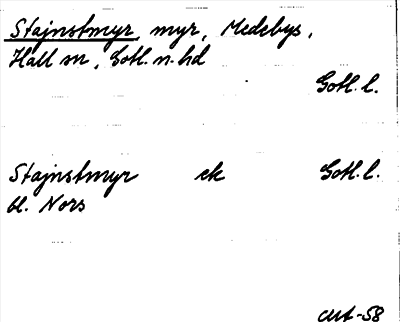 Stajnstmyr, myr, Medebys,
Hall sn, Gotl. n. hd
Gotl. l.
Stajnstmyr ek Gotl. l.
bl. Nors
-58